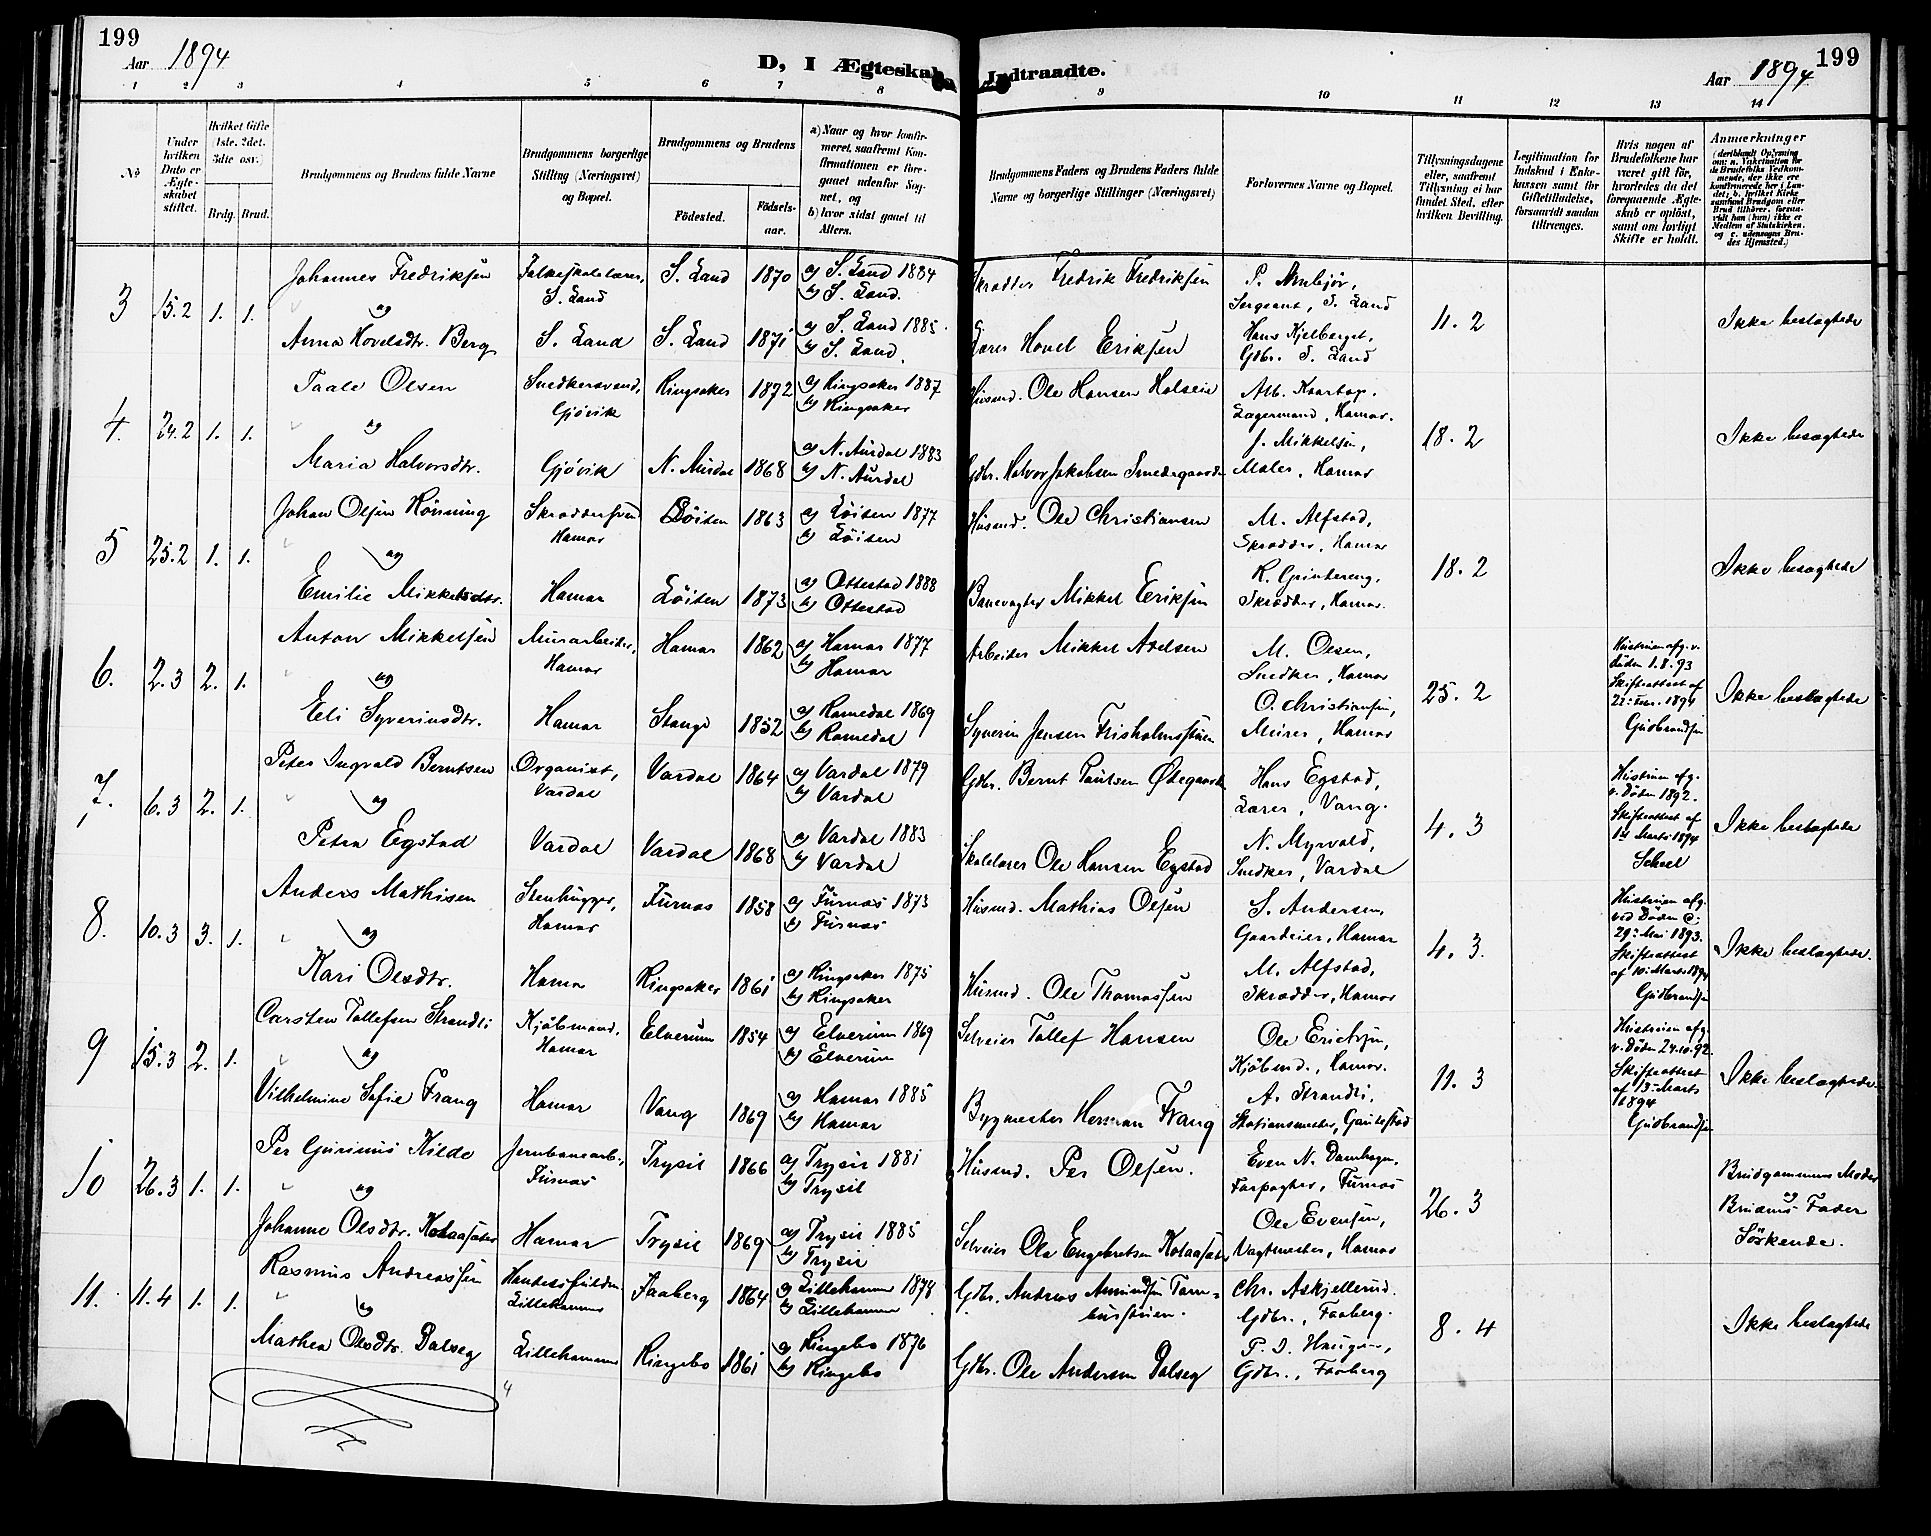 199
Aar 1894
D, I Ægteskab Indtraadte.
Aar 1894
199
1 2 3 4 5 6 7 8 9 10 11 12 13 14
No
Under hvilken Dato er Ægteskabet stiftet.
Hvilket Gifte (1ste. 2det. 3die osv.)
Brdg. Brud.
Brudgommens og Brudens fulde Navne
Brudgommens borgerlige Stilling (Næringsvei) og Bopæl.
Brudgommens og Brudens
Fødested.
Fødselsaar.
a) Naar og hvor konfirmeret, saafremt Konfirmationen er foregaaet udenfor Sognet, og
b) hvor sidst gaaet til Alters.
Brudgommens Faders og Brudens Faders fulde Navne og borgerlige Stillinger (Næringsvei)
Forlovernes Navne og Bopæl.
Tillysningsdagene eller, saafremt Tillysning ei har fundet Sted, efter hvilken Bevilling.
Legitimation for Indskud i Enkekassen samt for Giftetilladelse, forsaavidt saadan tiltrænges.
Hvis nogen af Brudefolkene har været gift før, hvorledes da det foregaaende Ægteskab er opløst, samt om lovligt Skifte er holdt.
Anmærkninger
(deriblandt Oplysning om: a. Vaksination for de Brudefolks Vedkommende, der ikke ere konfirmerede her i Landet; b. hvilket Kirkesamfund Brudgom eller Brud tilhører, forsaavidt han (hun) ikke er Medlem af Statskirken, og c. udensogns Brudes Hjemsted.)
3 15.2 1. 1. Johannes Fredriksen Folkeskolelærer, S. Land S. Land 1870 a) S. Land 1884 b) S. Land. Skrædder Fredrik Fredriksen P. Arnbjør, Sergeant, S. Land 11. 2 Ikke beslægtede
og
Anna Hovelsdtr. Berg S. Land S. Land 1871 a) S. Land 1885. b) S. Land. Lærer Hovel Eriksen Hans Kjelberget, Gdbr. S. Land
4. 24.2 1. 1. Paale Olsen Snedkersvend, Gjøvik Ringsaker 1872 a) Ringsaker 1887 b) Ringsaker Husmd. Ole Hansen Holseie Alb. Kvartop. Lagermand, Hamar. 18. 2 Ikke beslægtede
og
Maria Halvorsdtr. Gjøvik N. Aurdal 1868 a) N. Aurdal 1883 b) N. Aurdal Gdbr. Halvor Jakobsen Smedsgaarden J. Mikkelsen, Maler, Hamar
5 25.2 1. 1. Johan Olsen Hørning Skræddersvend Hamar Løiten 1863 a) Løiten 1877 b) Løiten Husmd. Ole Christiansen M. Alfstad, Skrædder, Hamar 18. 2 Ikke beslægtede
og
Emilie Mikkelsdtr. Hamar Løiten 1873 a) Ottestad 1888 b) Ottestad Banevogter Mikkel Eriksen K. Grindereng, Skrædder, Hamar.
6. 2.3 2. 1. Anton Mikkelsen Murarbeider, Hamar Hamar 1862 a) Hamar 1877 b) Hamar Arbeider Mikkel Axelsen M. Olsen, Snedker, Hamar 25. 2 Hustruen afg. v. Døden 1.8.93 Skifteattest af 22. Febr. 1894 Gudbrandsen Ikke beslægtede
og
Eli Syverinsdtr. Hamar Stange 1852 a) Romedal 1869 b) Romedal Syverin Jensen Frisholmsstuen O. Christiansen, Murer, Hamar
7. 6.3 2. 1. Peter Ingvald Berntsen Organist, Vardal Vardal 1864 a) Vardal 1879 b) Vardal Gdbr. Bernt Paulsen Ødegaarden Hans Egstad, Lærer, Vang. 4. 3 Hustruen afg. v. Døden 1892. Skifteattest af 1st Marts 1894 Scheel Ikke beslægtede
og
Petra Egstad Vardal Vardal 1868 a) Vardal 1883 b) Vardal Skolelærer Ole Hansen Egstad N. Myrvold, Snedker, Vardal
8. 10.3 3. 1. Anders Mathisen Stenhugger, Hamar Furnæs 1858 a) Furnæs 1873 b) Furnæs Husmd. Mathias Olsen S. Andersen, Gaardeier, Hamar 4. 3. Hustruen afg. ved Døden d. 29. Mai 1893. Skifteattest af 10. Marts 1894 Gudbrandsen Ikke beslægtede.
og
Kari Olsdtr. Hamar Ringsaker 1861 a) Ringsaker 1875 b) Ringsaker Husmd. Ole Thomassen M. Alfstad, Skrædder, Hamar
9 15.3 2. 1. Carsten Tollefsen Strandli Kjøbmand, Hamar Elverum 1854 a) Elverum 1869 b) Elverum Selveier Tollef Hansen Ole Ericksen, Kjøbmd., Hamar. 11. 3 Hustruen afg. v. Døden 24.10.92. Skifteattest af 13. Marts 1894 Gudbrandsen Ikke beslægtede.
og
Vilhelmine Sofie Frang Hamar Vang 1869 a) Hamar 1885 b) Hamar Bygmester Herman Frang A. Strandli, Stationsmester, Gaulestad
10 26.3 1. 1. Per Gurinius Kilde Jernbanearb., Furnæs Trysil 1866 a) Trysil 1881 b) Trysil Husmd. Per Olsen. Even N. Damhagen, Forpagter, Furnæs 26. 3 Brudgommens Moder og Brudens Fader Søskende.
og
Johanne Olsdtr. Kolaasæter Hamar Trysil 1869 a) Trysil 1885 b) Trysil Selveier Ole Engebretsen Kolaasæter Ole Evensen, Vagtmester, Hamar
11. 11.4 1. 1. Rasmus Andreassen Handelsfuldm. Lillehammer Faaberg 1864 a) Lillehammer 1878 b) Lillehammer Gdbr. Andreas Amundsen Tamhusstuen. Chr. Askjellerud. Gdbr., Faaberg. 8. 4 Ikke beslægtede
og
Mathea Olsdtr. Dalseg Lillehammer Ringebo 1861 a) Ringebo 1876 b) Ringebo Gdbr. Ole Andersen Dalseg P. I. Haugen, Gdbr., Faaberg